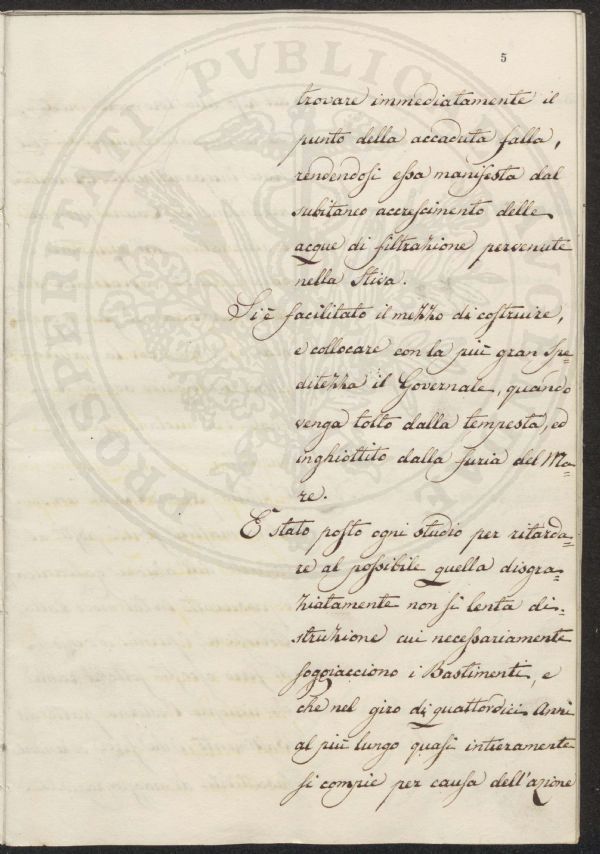 5
PROSPERITATI PVBLICAE
trovare immediatamente il
punto della accaduta falla,
rendendosi essa manifesta dal
subitaneo accrescimento delle
acque di filtrazione pervenute
nella Stiva.
Si è facilitato il mezzo di costruire,
e collocare con la più gran spe=
ditezza il Governale, quando
venga tolto dalla tempesta, ed
inghiottito dalla furia del Ma=
re.
E' stato posto ogni studio per ritarda=
re al possibile quella disgra=
ziatamente non sì lenta di=
struzione cui necessariamente
soggiacciono i Bastimenti, e
che nel giro di quattordici Anni
al più lungo quasi intieramente
si compie per causa dell'azione